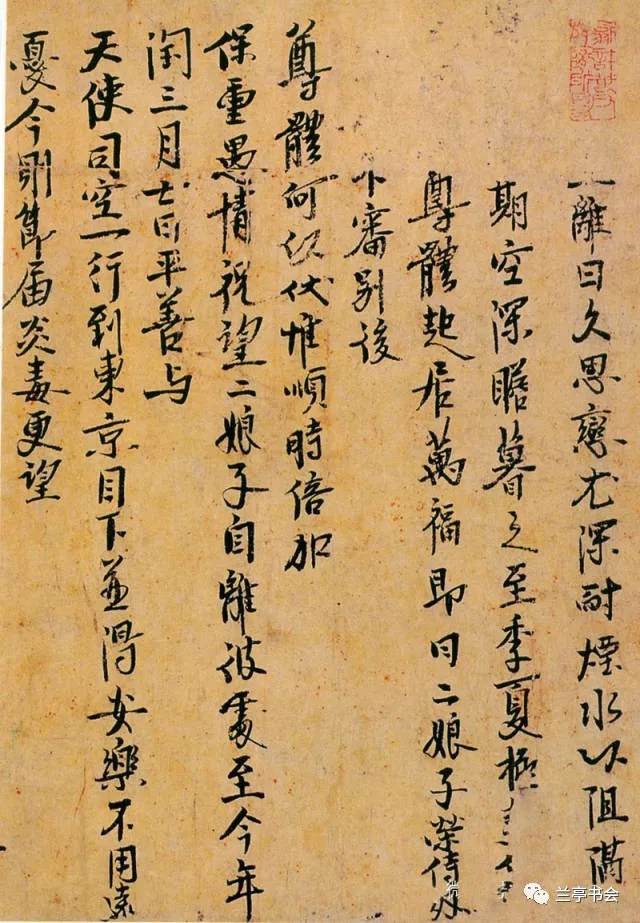 一離日久思戀尤深耐煙水以阻隔
期空深瞻暮之至季夏極
尊體起居萬福即日二娘子榮侍
不審別後
尊體何似伏惟順時倍加
保重愚情祝望二娘子自離彼處至今年
閏三月七日平善与
天使司空一行到東京目下並得安樂不用遠
憂今則節届炎毒更望
兰亭书会